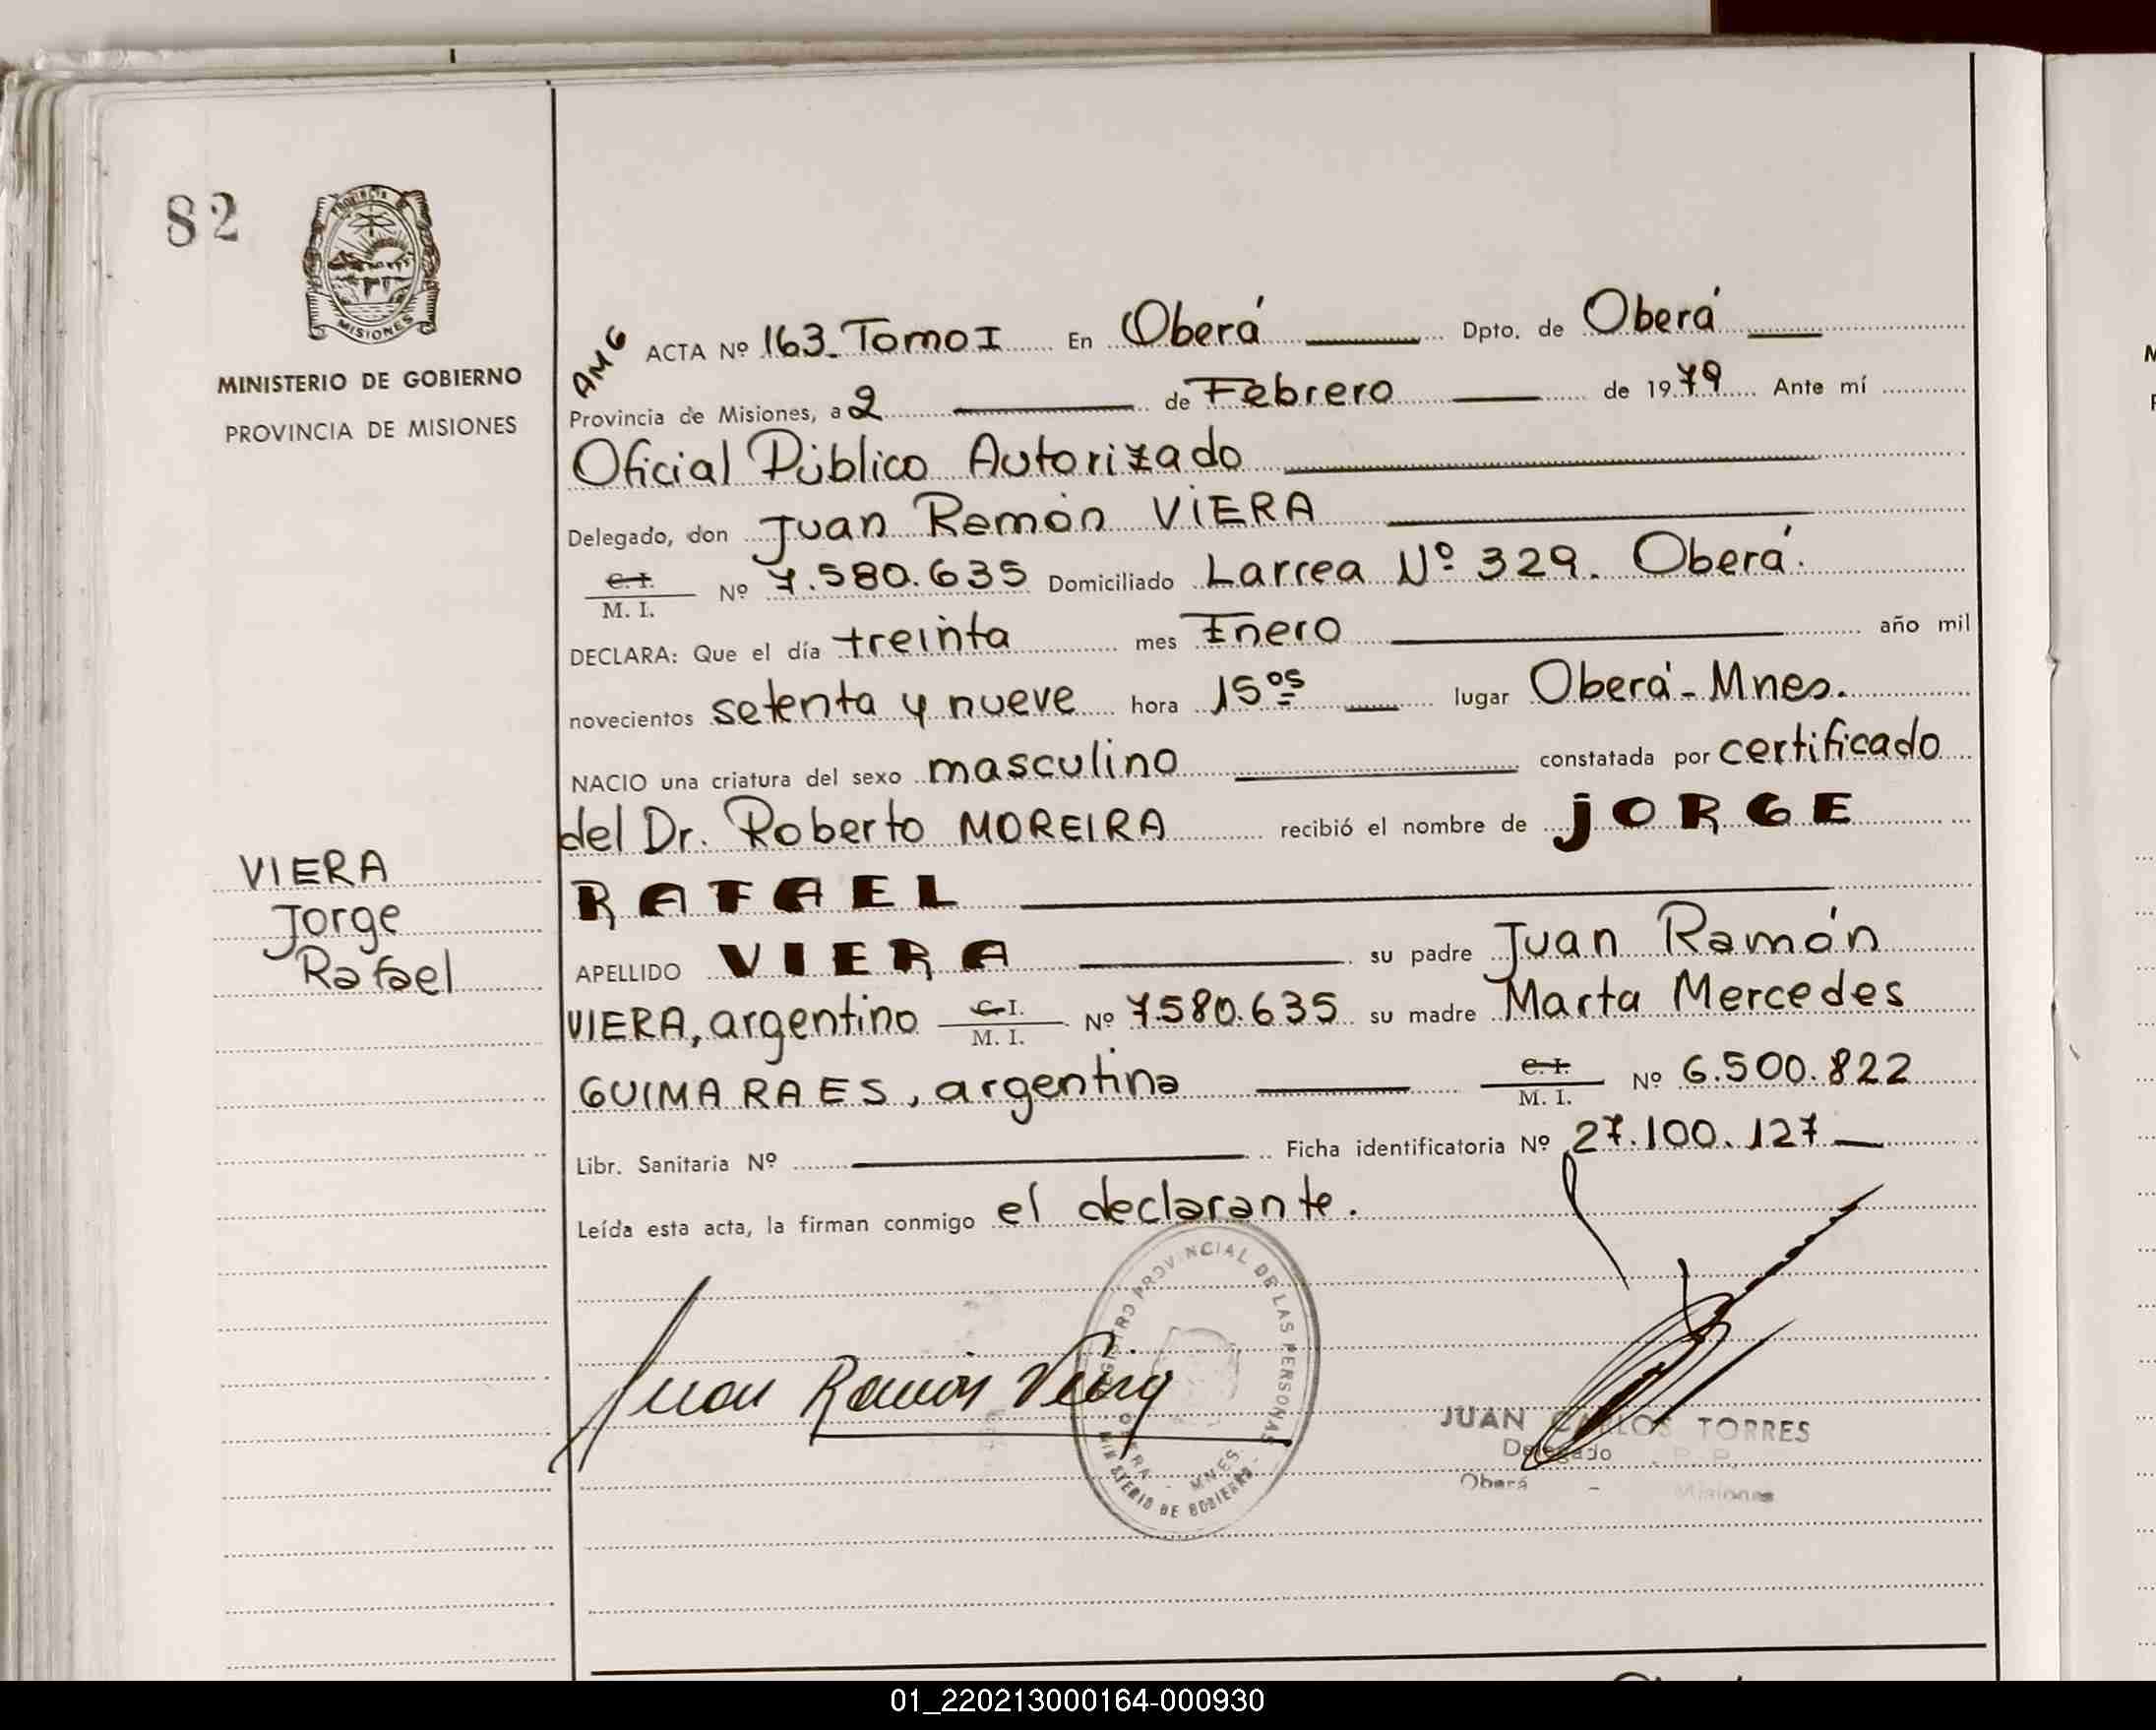 82
PROVINCIA
MISIONES
MINISTERIO DE GOBIERNO
PROVINCIA DE MISIONES
VIERA
Jorge
Rafael
AMG
ACTA Nº 163. Tomo I En Oberá Dpto. de Oberá
Provincia de Misiones, a 2 de Febrero de 1979 Ante mí
Oficial Público Autorizado
Delegado, don Juan Ramón VIERA
C. I.
M. I.
Nº 7.580.635 Domiciliado Larrea Nº 329. Oberá.
DECLARA: Que el día treinta mes Enero año mil
novecientos setenta y nueve hora 15 05 lugar Oberá - Mnes.
NACIO una criatura del sexo masculino constatada por certificado
del Dr. Roberto MOREIRA recibió el nombre de JORGE
RAFAEL
APELLIDO VIERA su padre Juan Ramón
VIERA, argentino C. I. M. I. Nº 7.580.635 su madre Marta Mercedes
GUIMARAES, argentina C. I. M. I. Nº 6.500.822
Libr. Sanitaria Nº Ficha identificatoria Nº 27.100.127
Leída esta acta, la firman conmigo el declarante.
REGISTRO PROVINCIAL DE LAS PERSONAS
OBERA - MNES.
MINISTERIO DE GOBIERNO
Juan Ramón Viera
JUAN CARLOS TORRES
Delegado R. P.
Oberá - Misiones
01_220213000164-000930